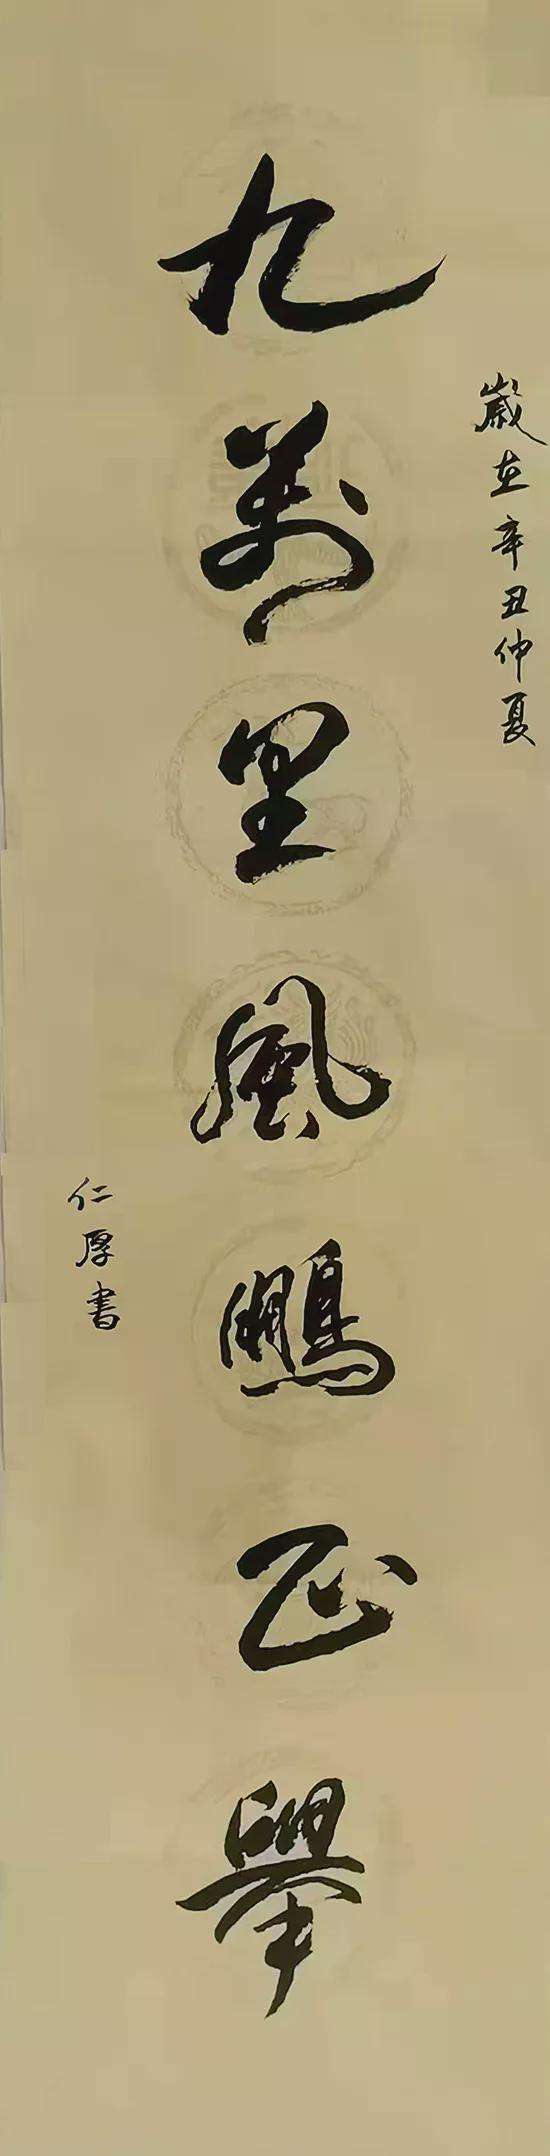 歲在辛丑仲夏
九萬里風鵬正舉
仁厚書